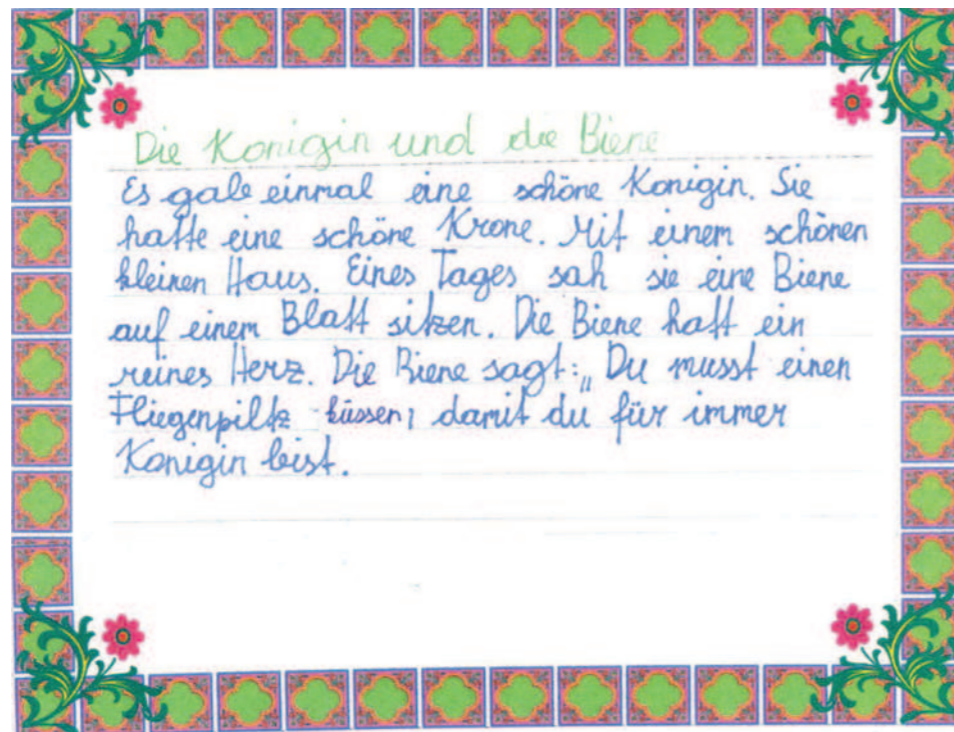 Die Konigin und die Biene
Es gab einmal eine schöne Konigin. Sie
hatte eine schöne Krone. Mit einem schönen
kleinen Haus. Eines Tages sah sie eine Biene
auf einem Blatt sitzen. Die Biene hatt ein
reines Herz. Die Biene sagt: „Du musst einen
Fliegenpiltz küssen, damit du für immer
Konigin bist.